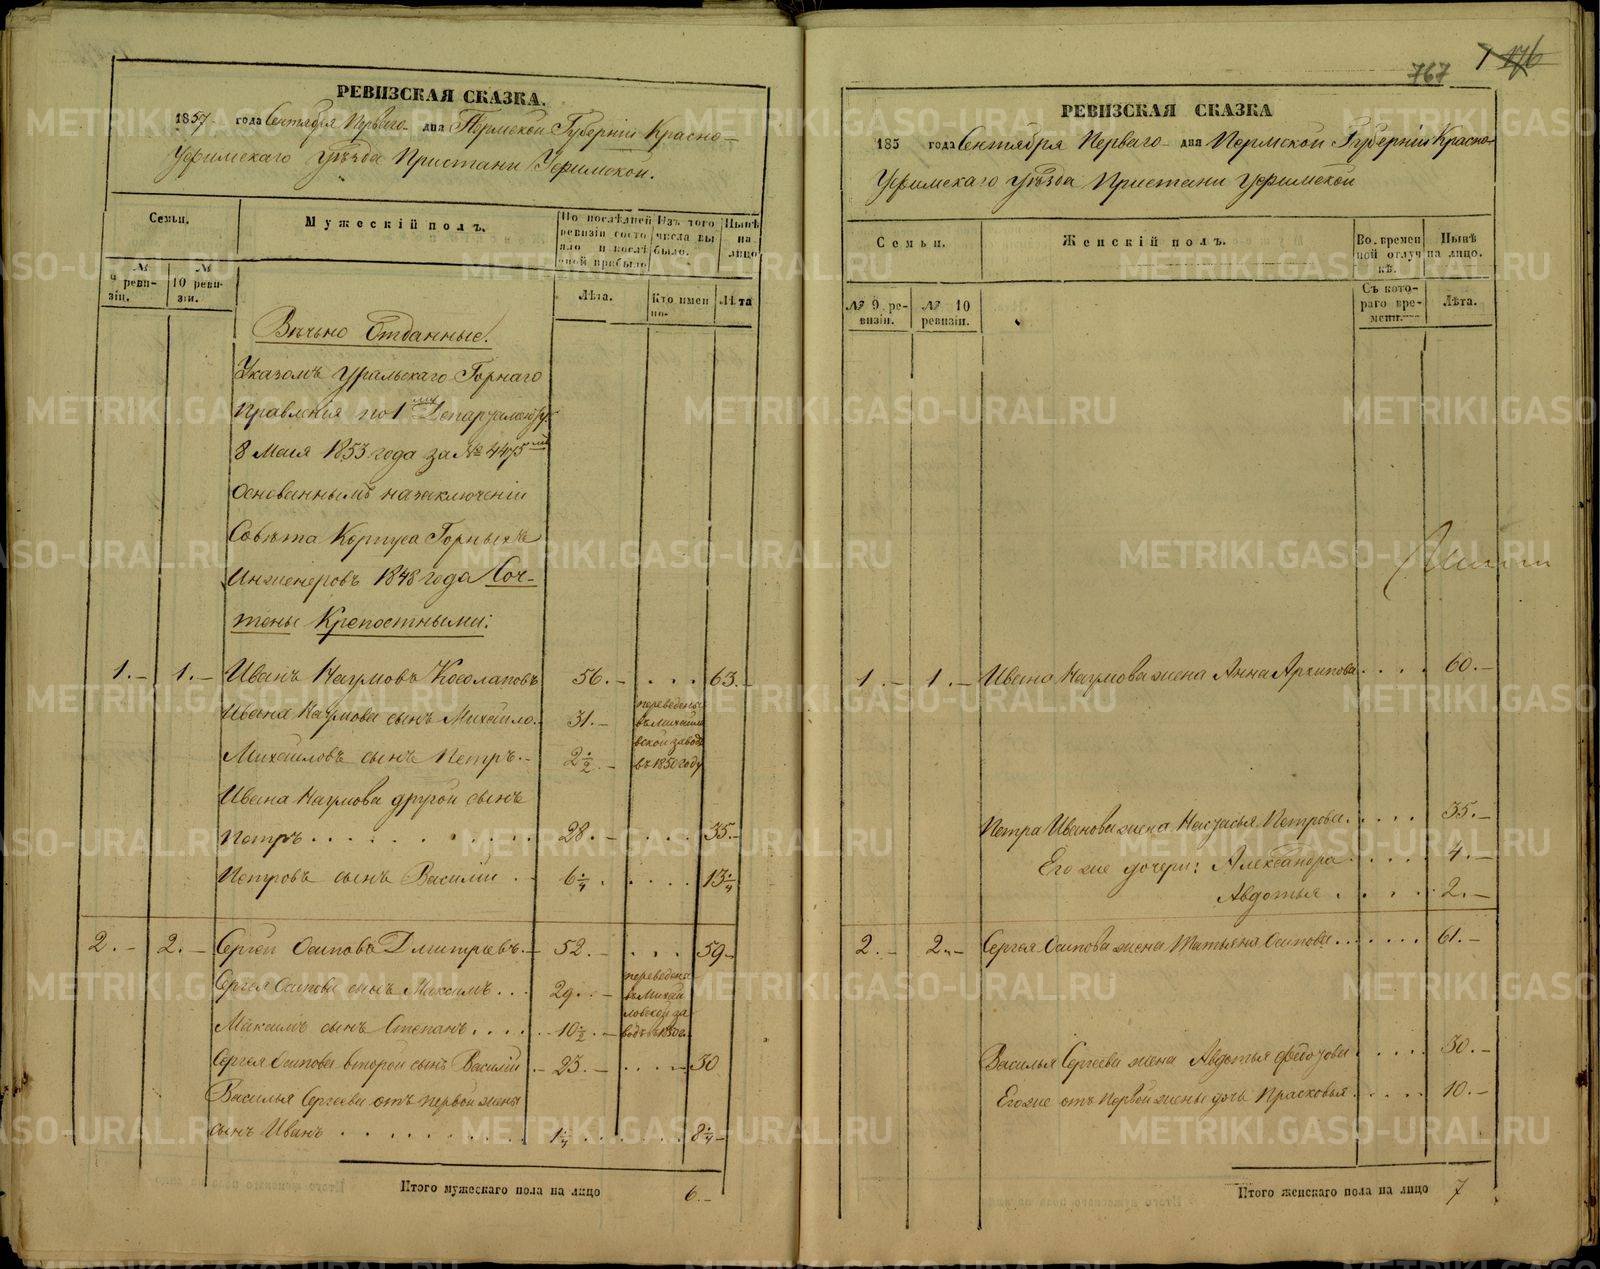 РЕВИЗСКАЯ СКАЗКА.
1857 года Сентября Перваго дня Пермской Губерніи Красно-
Уфимскаго Уѣзда Пристани Уфимской.
Семьи.
Мужескій полъ.
По послѣдней ревизіи состояло и послѣ оной прибыло
Изъ того числа выбыло.
Нынѣ на лицо
№ 9 ревизіи.
№ 10 ревизіи.
Лѣта.
Кто именно
Лѣта
Вѣчно Отданные.
Указомъ Уральскаго Горнаго
Правленія по 1му Департаменту
8 Мая 1853 года за № 4475мъ
основаннымъ на заключеніи
Совѣта Корпуса Горныхъ
Инженеровъ 1848 года Соч-
тены Крепостными:
1. 1. Иванъ Наумовъ Косолаповъ 56. . . . 63.
Ивана Наумова сынъ Михайло 31. переведены
въ Михайловской заводъ
Михайловъ сынъ Петръ 2 1/2 въ 1850 году
Ивана Наумова другой сынъ
Петръ 28. 35.
Петровъ сынъ Василій 6 1/4 13 1/4
2. 2. Сергей Осиповъ Дмитріевъ 52. . . . 59
Сергея Осипова сынъ Максимъ 29. переведены
въ Михайловской заводъ
Максимъ сынъ Степанъ 10 1/2 въ 1850 г.
Сергея Осипова второй сынъ Василій 23. 30
Василья Сергеева отъ первой жены
сынъ Иванъ 1 1/4 8 1/4
Итого мужескаго пола на лицо 6.
767 7 176
РЕВИЗСКАЯ СКАЗКА
185 года Сентября Перваго дня Пермской Губерніи Красно-
Уфимскаго Уѣзда Пристани Уфимской
Семьи.
Женскій полъ.
Во временной отлучкѣ.
Нынѣ на лицо.
№ 9 ревизіи.
№ 10 ревизіи.
Съ котораго времени.
Лѣта.
1. 1. Ивана Наумова жена Анна Архипова 60.
Петра Иванова жена Настасья Петрова 35.
Его же дочери: Александра 4.
Авдотья 2.
2. 2. Сергея Осипова жена Татьяна Осипова 61.
Василья Сергеева жена Авдотья Федотова 30.
Его же отъ первой жены дочь Прасковья 10.
Итого женскаго пола на лицо 7
METRIKI.GASO-URAL.RU